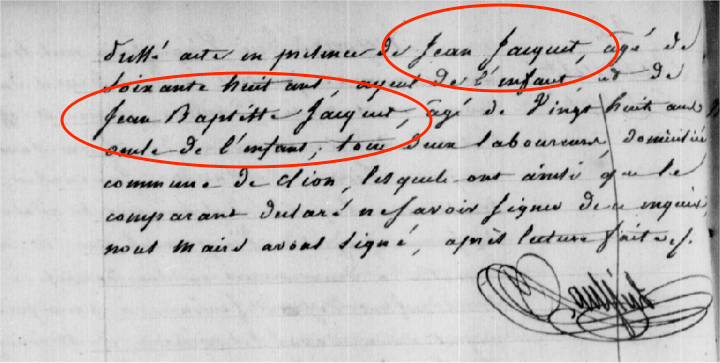 dressé acte en présence de Jean Jacquet, âgé de
soixante huit ans, ayeul de l'enfant, et de
Jean Baptiste Jacquet, âgé de vingt huit ans
oncle de l'enfant; tous deux laboureurs, domiciliés
commune de Clion, lesquels ont ainsi que le
comparant déclaré ne savoir signer de ce enquis,
nous maire avons signé, après lecture faite.